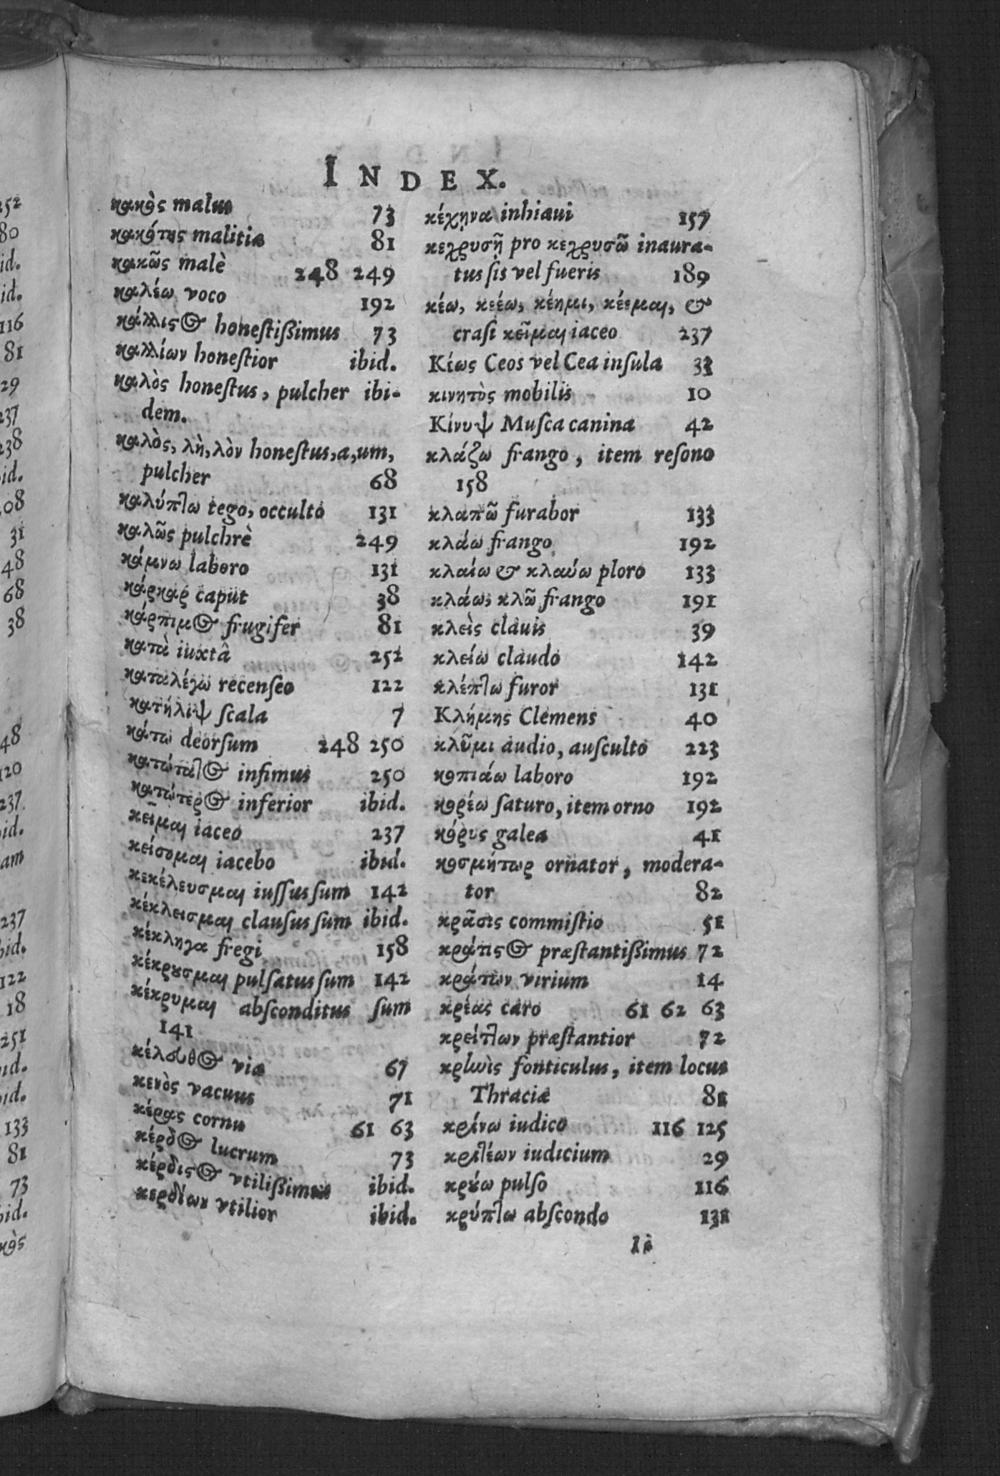 INDEX.
κακὸς malus 73
κακότης malitia 81
κακῶς malè 248 249
καλέω voco 192
κάλλιστος honestißimus 73
καλλίων honestior ibid.
καλὸς honestus, pulcher ibi-
dem.
καλὸς, λὴ, λὸν honestus, a, um,
pulcher 68
καλύπτω tego, occulto 131
καλῶς pulchrè 249
κάμνω laboro 131
κάρκαρ caput 38
κάρπιμος frugifer 81
κατὰ iuxtà 252
καταλέγω recenseo 122
κατήλιψ scala 7
κάτω deorsum 248 250
κατώτατος infimus 250
κατώτερος inferior ibid.
κεῖμαι iaceo 237
κείσομαι iacebo ibid.
κεκέλευσμαι iussus sum 142
κέκλεισμαι clausus sum ibid.
κέκληγα fregi 158
κέκρουσμαι pulsatus sum 142
κέκρυμαι absconditus sum
141
κέλευθος via 67
κενὸς vacuus 71
κέρας cornu 61 63
κέρδος lucrum 73
κέρδιστος vtilißimus ibid.
κερδίων vtilior ibid.
κέχηνα inhiaui 157
κεχρυσῇ pro κεχρυσῶ inaura-
tus sis vel fueris 189
κέω, κείω, κέημι, κέεμαι, &
crasi κεῖμαι iaceo 237
Κέως Ceos vel Cea insula 33
κινητὸς mobilis 10
Κίνυψ Musca canina 42
κλάζω frango, item resono
158
κλαπῶ furabor 133
κλάω frango 192
κλαίω & κλαύω ploro 133
κλάω, κλῶ frango 191
κλεὶς clauis 39
κλείω claudo 142
κλέπτω furor 131
Κλήμης Clemens 40
κλῦμι audio, ausculto 223
κοπιάω laboro 192
κορέω saturo, item orno 192
κόρυς galea 41
κοσμήτωρ ornator, modera-
tor 82
κρᾶσις commistio 51
κράτιστος præstantißimus 72
κράτων virium 14
κρέας caro 61 62 63
κρείττων præstantior 72
κρηνὶς fonticulus, item locus
Thraciæ 81
κρίνω iudico 116 125
κριτέων iudicium 29
κρούω pulso 116
κρύπτω abscondo 131
Ii
252
80
id.
id.
116
81
29
237
238
id.
108
31
48
68
38
48
120
237
id.
am
237
bid.
122
18
251
id.
id.
133
81
73
id.
κὸς